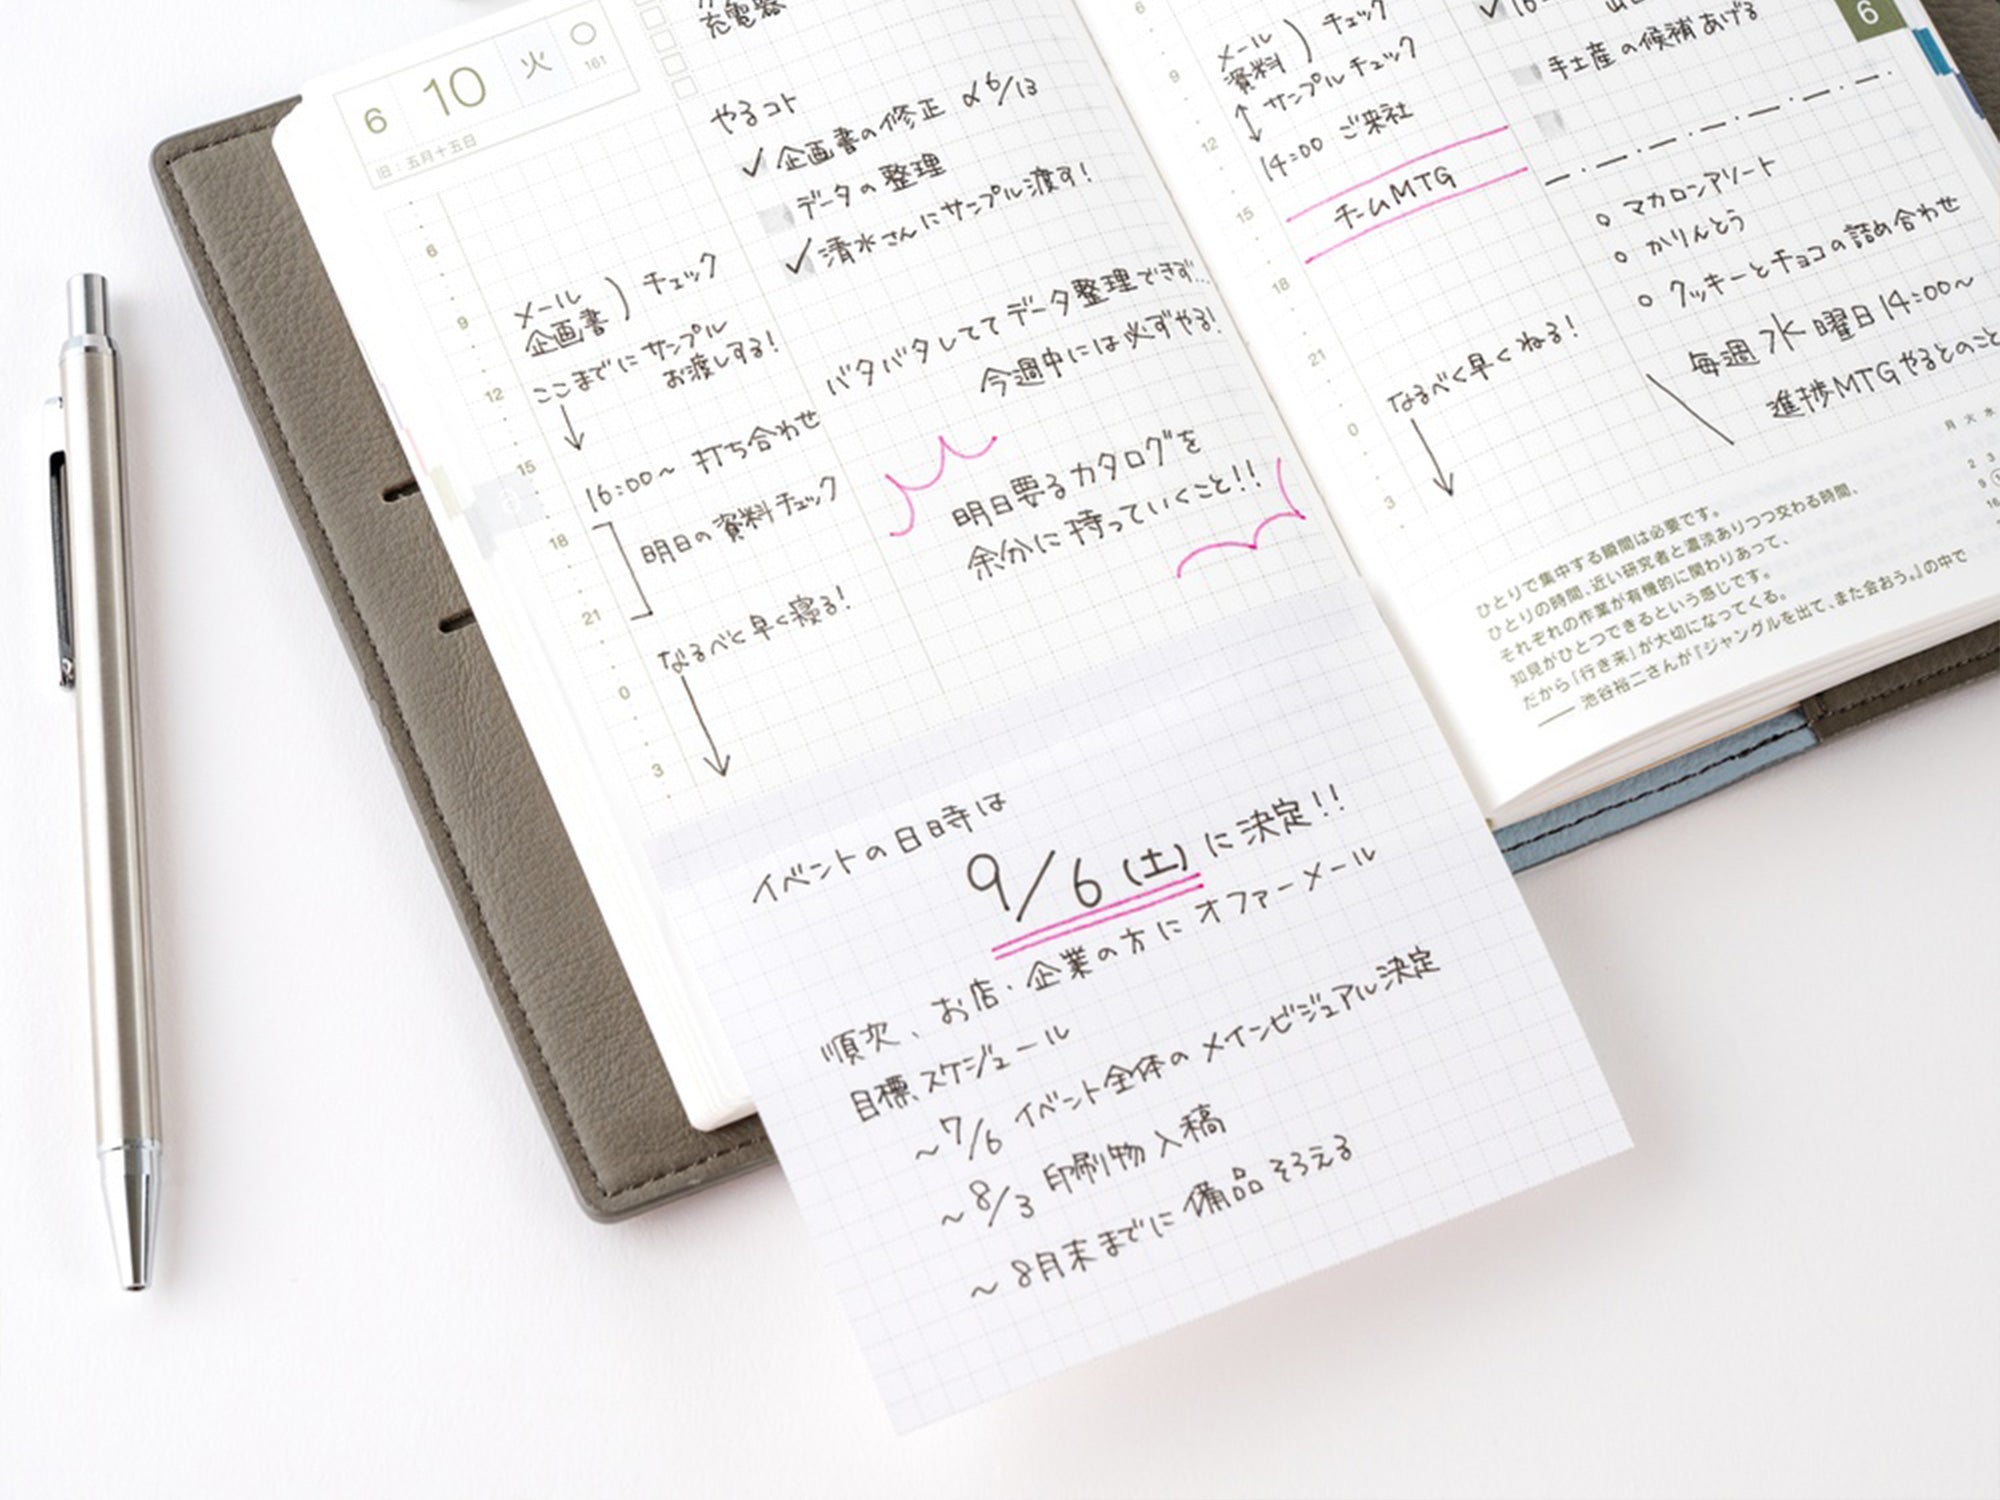 6 10 火
161
旧：五月十五日
充電器
やるコト
✓ 企画書の修正 〆6/13
データの整理
✓ 清水さんにサンプル渡す!
バタバタしててデータ整理できず…
今週中には必ずやる!
明日要るカタログを
余分に持っていくこと!!
6
9
12
15
18
21
0
3
メール
企画書
) チェック
ここまでにサンプル
お渡しする!
16:00〜 打ち合わせ
明日の資料チェック
なるべく早く寝る!
イベントの日時は
9/6(土)に決定!!
順次、お店・企業の方にオファーメール
目標スケジュール
〜7/6 イベント全体のメインビジュアル決定
〜8/3 印刷物入稿
〜8月末までに備品そろえる
6
9
12
15
18
21
0
3
メール
資料
) チェック
サンプルチェック
14:00 ご来社
チームMTG
なるべく早くねる!
手土産の候補あげる
○ マカロンアソート
○ かりんとう
○ クッキーとチョコの詰め合わせ
毎週水曜日14:00〜
進捗MTGやるとのこと
6
月 火 水
2 3
9
16
ひとりで集中する瞬間は必要です。
ひとりの時間、近い研究者と濃淡ありつつ交わる時間、
それぞれの作業が有機的に関わりあって、
知見がひとつできるという感じです。
だから「行き来」が大切になってくる。
── 池谷裕二さんが『ジャングルを出て、また会おう。』の中で